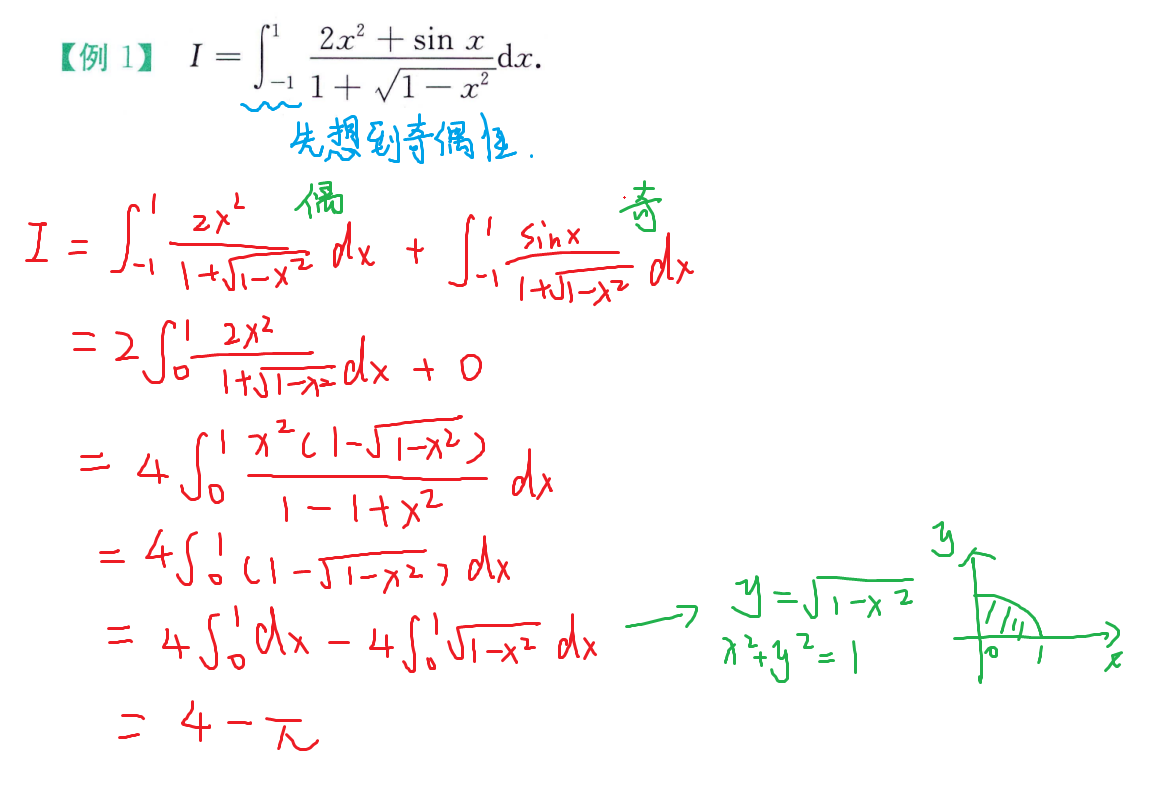 【例 1】 I = ∫_{-1}^{1} \frac{2x² + sin x}{1 + √(1 − x²)} dx.
先想到奇偶性.
偶 奇
I = ∫_{-1}^{1} \frac{2x²}{1+√(1-x²)} dx + ∫_{-1}^{1} \frac{sinx}{1+√(1-x²)} dx
= 2 ∫_{0}^{1} \frac{2x²}{1+√(1-x²)} dx + 0
= 4 ∫_{0}^{1} \frac{x²(1-√(1-x²))}{1-1+x²} dx
= 4 ∫_{0}^{1} (1-√(1-x²)) dx
= 4 ∫_{0}^{1} dx - 4 ∫_{0}^{1} √(1-x²) dx → y = √(1-x²)
x²+y² = 1
y
0 1 x
= 4 - π